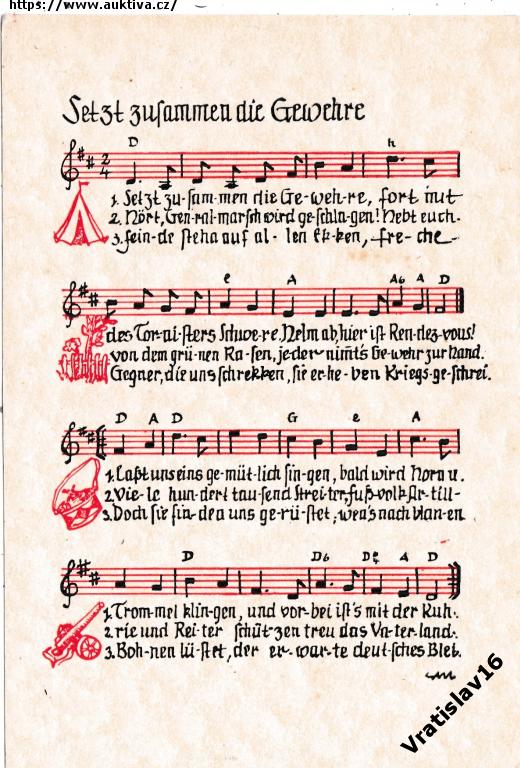 https://www.auktiva.cz/
Setzt zusammen die Gewehre
D h
2
4
1. Setzt zu-sam-men die Ge-weh-re, fort mit
2. Hört, Gen-ral-marsch wird ge-schla-gen! Hebt euch-
3. Fein-de stehn auf al-len Ek-ken, fre-che
e A A6 A D
des Tor-ni-sters Schwe-re. Helm ab, hier ist Ren-dez-vous!
von dem grü-nen Ra-sen, je-der nimt's Ge-wehr zur Hand.
Gegner, die uns schrekken, sie er-he-ben Kriegs-ge-schrei.
D A D G e A
1. Laßt uns eins ge-müt-lich sin-gen, bald wird Horn u.
2. Vie-le hun-dert tau-send Strei-ter, Fuß-volk, Ar-till-
3. Doch sie fin-den uns ge-rü-stet, wen's nach blau-en
D D6 A D
1. Trom-mel klin-gen, und vor-bei ist's mit der Ruh.
2. rie und Rei-ter schüt-zen treu das Va-ter-land.
3. Boh-nen lü-stet, der er-war-te deut-sches Blei.
Vratislav16